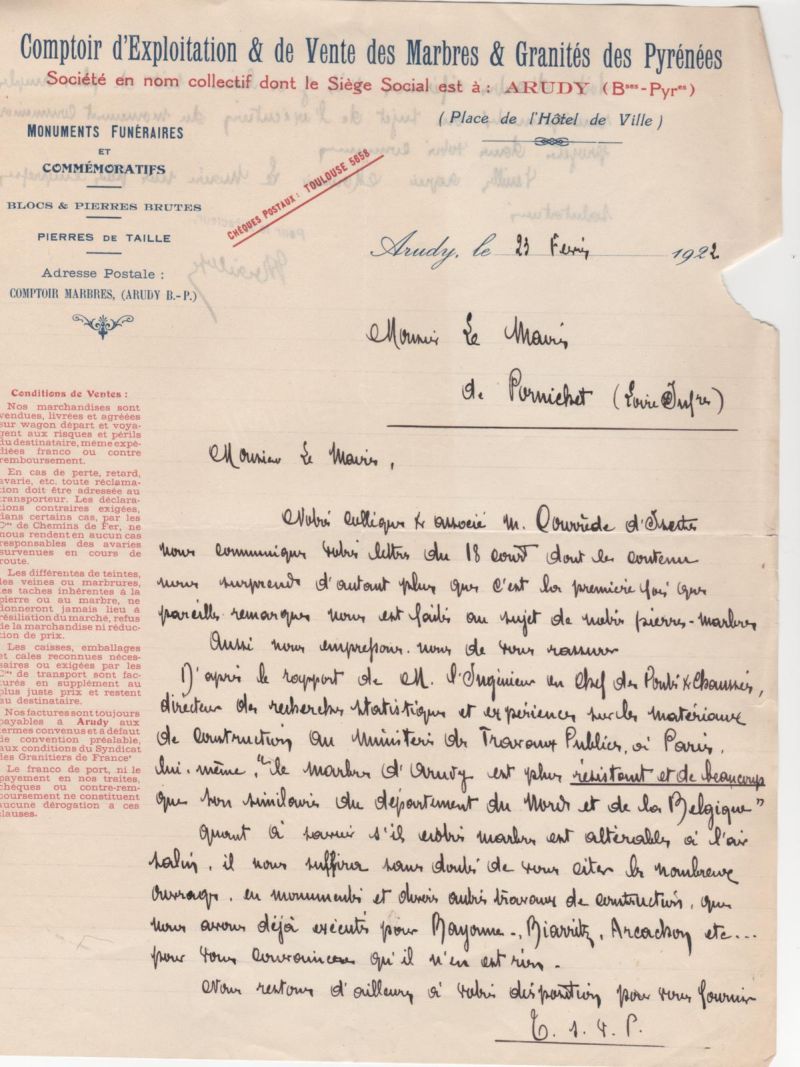 Comptoir d'Exploitation & de Vente des Marbres & Granités des Pyrénées
Société en nom collectif dont le Siège Social est à : ARUDY (Bses-Pyres)
(Place de l'Hôtel de Ville)
MONUMENTS FUNÉRAIRES
ET
COMMÉMORATIFS
BLOCS & PIERRES BRUTES
PIERRES DE TAILLE
Adresse Postale :
COMPTOIR MARBRES, (ARUDY B.-P.)
CHÈQUES POSTAUX : TOULOUSE 5658
Arudy, le 23 Février 1922
Monsieur Le Maire
de Pornichet (Loire Infre)
Conditions de Ventes :
Nos marchandises sont
vendues, livrées et agréées
sur wagon départ et voya-
gent aux risques et périls
du destinataire, même expé-
diées franco ou contre
remboursement.
En cas de perte, retard,
avarie, etc. toute réclama-
tion doit être adressée au
transporteur. Les déclara-
tions contraires exigées,
dans certains cas, par les
Cies de Chemins de Fer, ne
nous rendent en aucun cas
responsables des avaries
survenues en cours de
route.
Les différentes de teintes,
des veines ou marbrures,
les taches inhérentes à la
pierre ou au marbre, ne
donneront jamais lieu à
résiliation du marché, refus
de la marchandise ni réduc-
tion de prix.
Les caisses, emballages
et cales reconnues néces-
saires ou exigées par les
Cies de transport sont fac-
turés en supplément au
plus juste prix et restent
au destinataire.
Nos factures sont toujours
payables à Arudy aux
termes convenus et à défaut
de convention préalable,
aux conditions du Syndicat
des Granitiers de France
Le franco de port, ni le
payement en nos traites,
chèques ou contre-rem-
boursement ne constituent
aucune dérogation à ces
clauses.
Monsieur Le Maire,
Notre collègue & associé M. d'Izeste
nous communique votre lettre du 18 court dont le contenu
nous surprend d'autant plus que c'est la première fois que
pareille remarque nous est faite au sujet de notre pierre-marbre
Aussi nous empressons-nous de vous rassurer
D'après le rapport de M. l'Ingénieur en Chef des Ponts & Chaussées,
directeur des recherches statistiques et expériences sur les matériaux
de construction au Ministère des Travaux Publics, à Paris,
lui-même, "le marbre d'Arudy est plus résistant et de beaucoup
que son similaire du département du Nord et de la Belgique"
Quant à savoir s'il notre marbre est altérable à l'air
salin, il nous suffira sans doute de vous citer le nombreux
ouvrage, en monuments et divers autres travaux de construction, que
nous avons déjà exécutés pour Bayonne, Biarritz, Arcachon etc...
pour vous convaincre qu'il n'en est rien.
Nous restons d'ailleurs à votre disposition pour vous fournir
T. S. V. P.